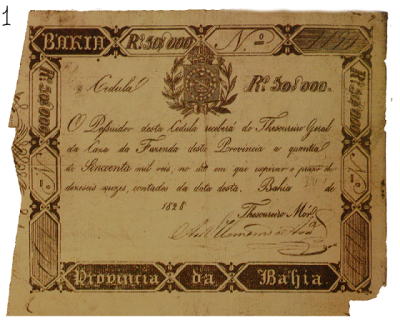 1
BAHIA Rs. 50$000 N.o
Cedula Rs. 50$000.
O Possuidor desta Cedula receberá do Thesoureiro Geral
da Caza da Fazenda desta Provincia a quantia
de Sincoenta mil reis, no dia em que expirar o prazo de
dezeseis mezes, contados da data desta. Bahia de
1828
Thesoureiro Mór.
Rs. 50$000
N.o
Rs. 50$000
N.o
Provincia da Bahia.